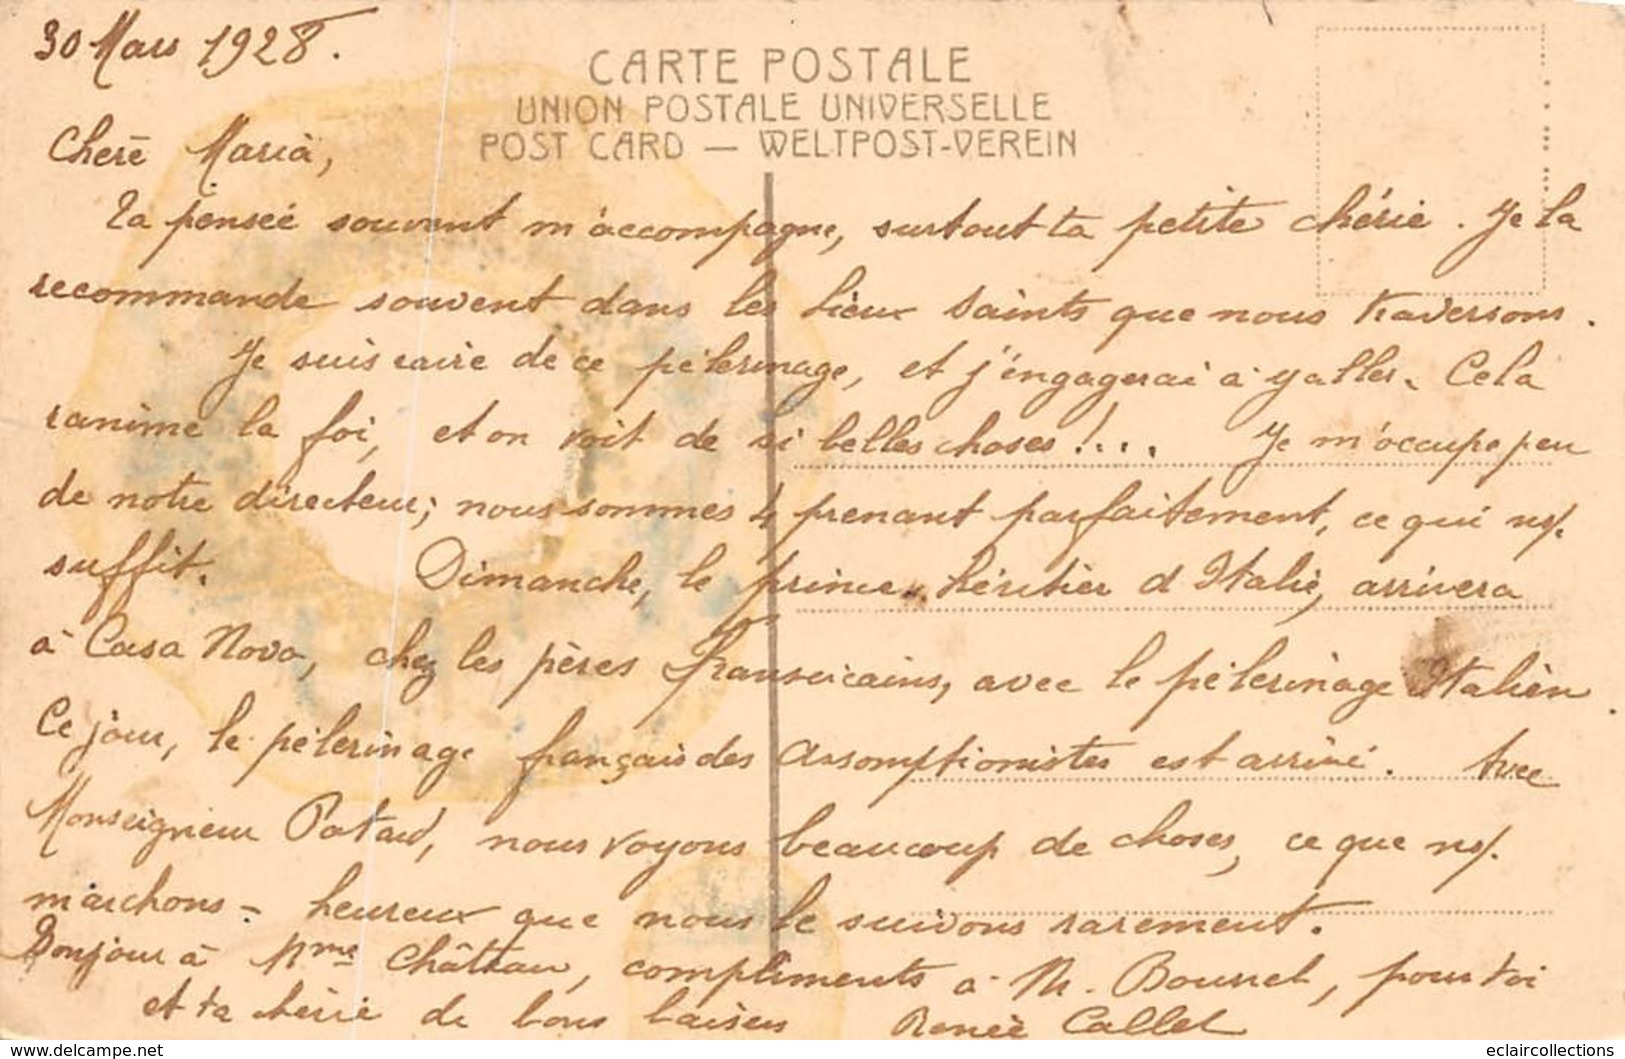 30 Mars 1928.
CARTE POSTALE
UNION POSTALE UNIVERSELLE
POST CARD — WELTPOST-VEREIN
Chère Maria,
Ta pensée souvent m'accompagne, surtout ta petite chérie. Je la
recommande souvent dans les lieux saints que nous traversons.
Je suis ravie de ce pèlerinage, et j'engagerai à y aller. Cela
ranime la foi, et on voit de si belles choses!... Je m'occupe peu
de notre directeur; nous sommes 4 prenant parfaitement, ce qui ns/.
suffit. Dimanche, le prince héritier d'Italie, arrivera
à Casa Nova, chez les pères Franciscains, avec le pèlerinage Italien.
Ce jour, le pèlerinage français des Assomptionistes est arrivé. Avec
Monseigneur Potard, nous voyons beaucoup de choses, ce que ns/.
marchons - heureux que nous le suivons rarement.
Bonjour à Mme Château, compliments à M. Bourrel, pour toi
et ta chérie de bons baisers Renée Callet
www.delcampe.net
eclaircollections